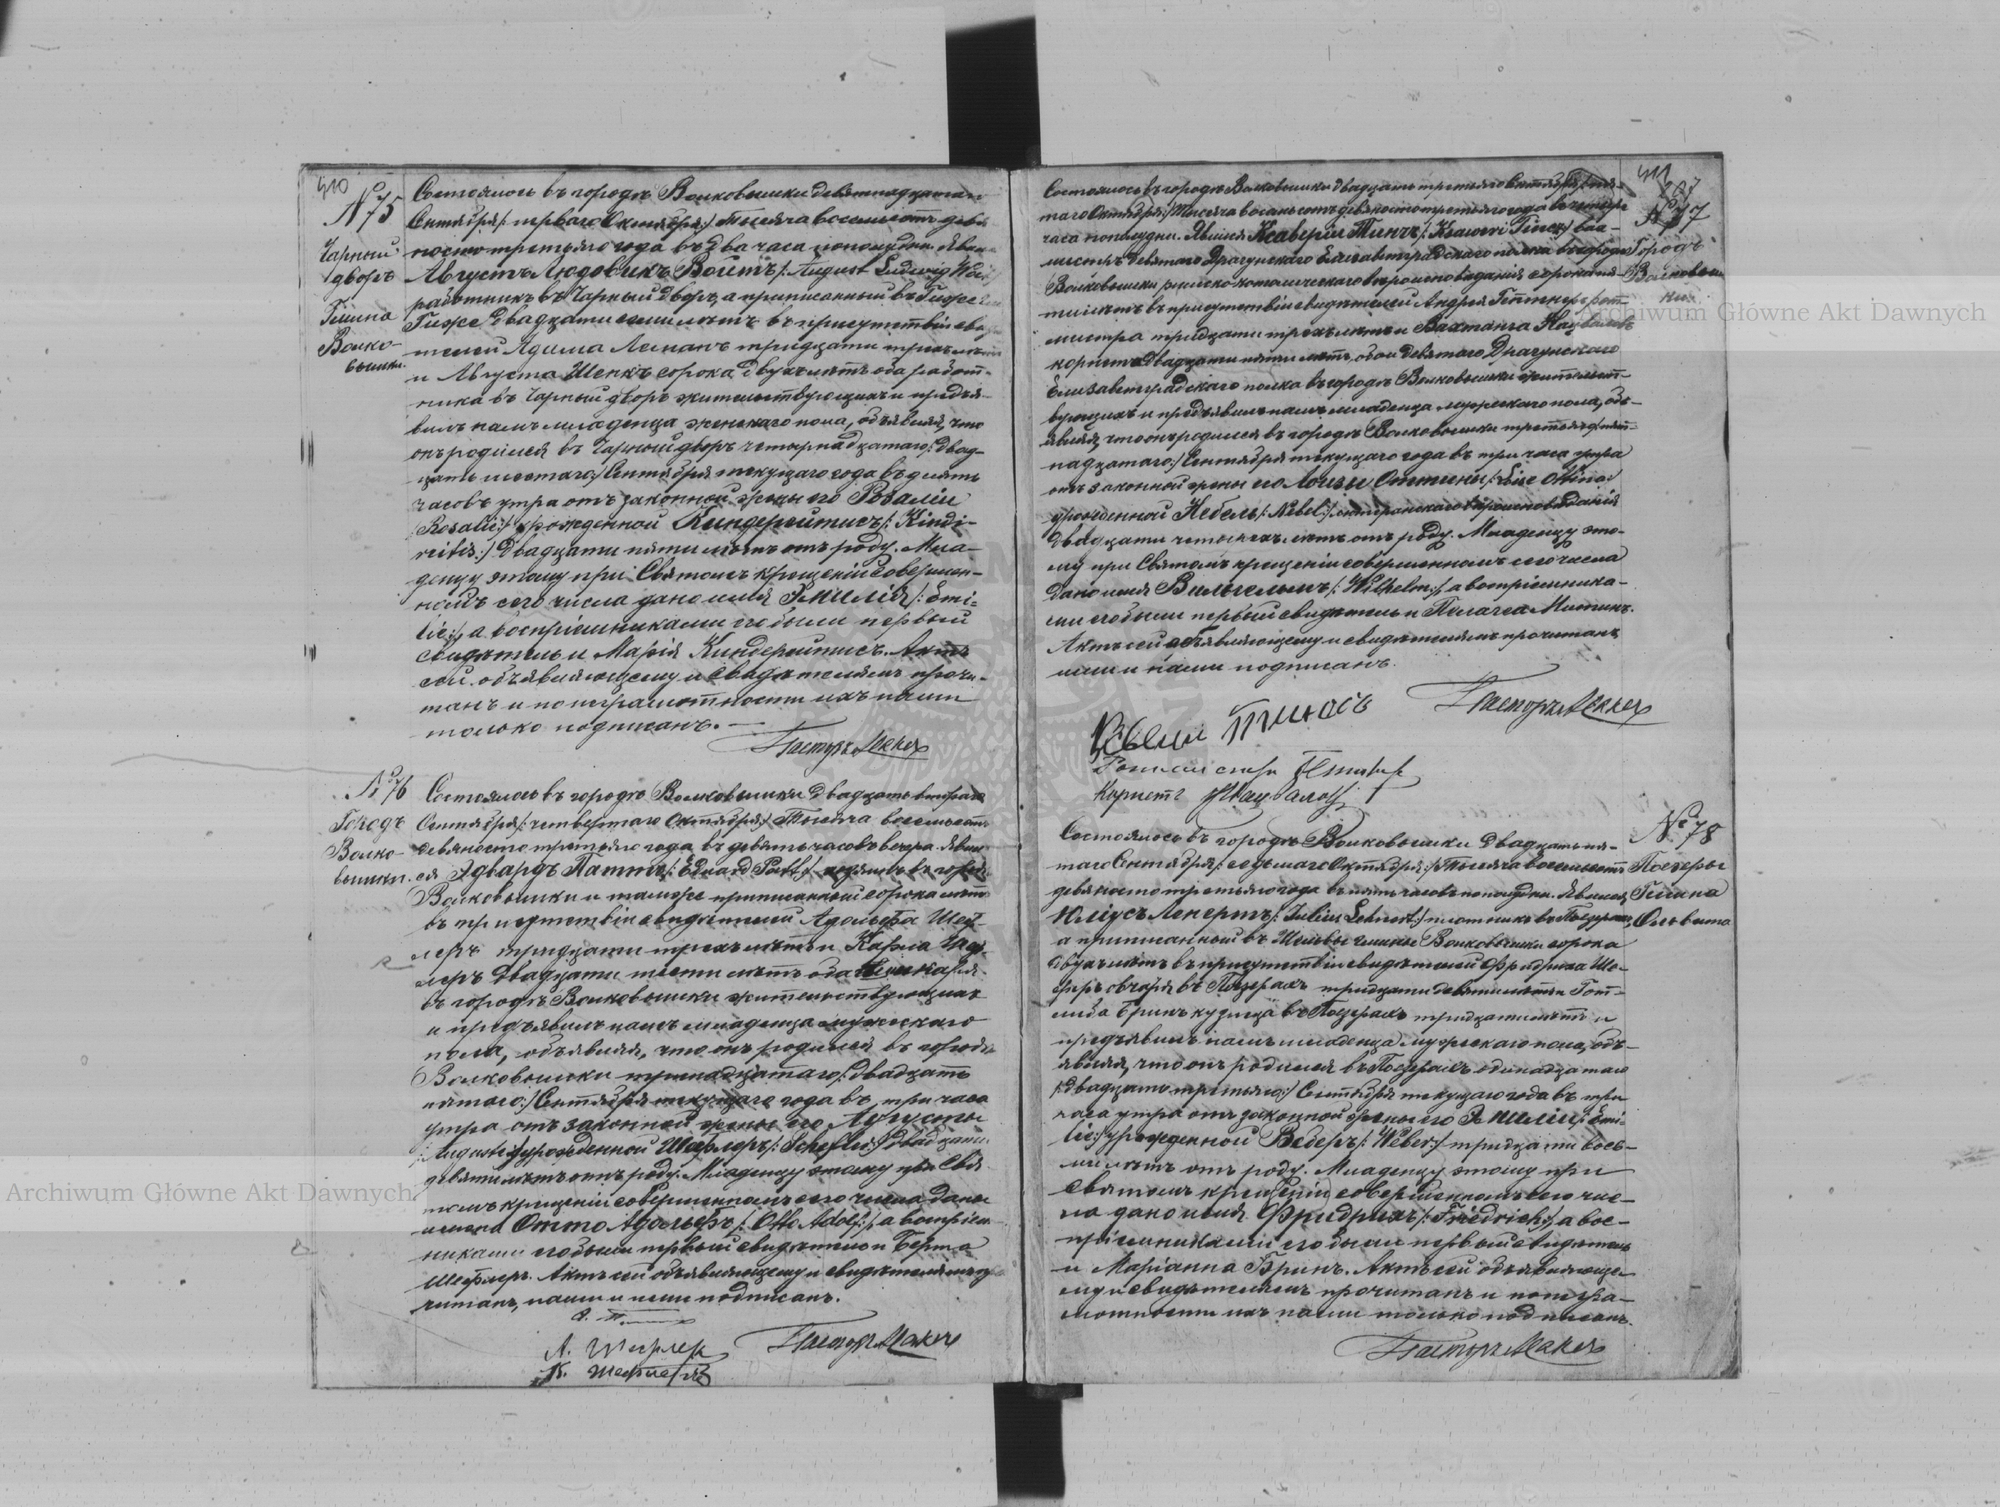 410
№ 75
Чарный
дворъ
Гмина
Волко-
вышки.
Состоялось въ городѣ Волковышки девятнадцатаго
Сентября /: перваго Октября :/ Тысяча восемьсотъ девя-
носто третьяго года въ два часа пополудни. Явился
Августъ Людовикъ Войтъ /: August Ludwig
работникъ въ Чарный дворъ, а приписанный въ
двадцати семи лѣтъ въ присутствіи свидѣ-
телей Адама Леманъ тридцати трехъ лѣтъ
и Августа Шенкъ сорока двухъ лѣтъ оба работ-
ника въ Чарный дворъ жительствующихъ и предъя-
вилъ намъ младенца женскаго пола, объявляя, что
онъ родился въ Чарный дворъ четырнадцатаго /: двад-
цать шестаго :/ Сентября текущаго года въ девять
часовъ утра отъ законной жены его Розаліи
/: Rosalie :/ урожденной Киндерейтисъ /: Kinde-
reitis :/ двадцати пяти лѣтъ отъ роду. Мла-
денцу этому при Святомъ крещеніи совершен-
номъ сего числа дано имя Эмилія /: Emi-
lie :/, а воспріемниками его были первый
свидѣтель и Марія Киндерейтисъ. Актъ
сей объявляющему и свидѣтелямъ прочи-
танъ и по неграмотности ихъ нами
только подписанъ. —
Пасторъ
№ 76
Городъ
Волко-
вышки.
Состоялось въ городѣ Волковышки двадцать втораго
Сентября /: четвертаго Октября :/ Тысяча восемьсотъ
девяносто третьяго года въ девять часовъ вечера. Явил-
ся Эдвардъ Паттъ /: Eduard Patt :/ въ городѣ
Волковышки и тамже приписанный сорока лѣтъ
въ присутствіи свидѣтелей Адольфа Шеф-
леръ тридцати трехъ лѣтъ и Карла Шеф-
леръ двадцати шести лѣтъ оба
въ городѣ Волковышки жительствующихъ
и предъявилъ намъ младенца мужескаго
пола, объявляя, что онъ родился въ городѣ
Волковышки тринадцатаго /: двадцать
пятаго :/ Сентября текущаго года въ три часа
утра отъ законной жены его Августы
/: Auguste :/ урожденной Шефлеръ /: Schefler :/ двадцати
девяти лѣтъ отъ роду. Младенцу этому при Свя-
томъ крещеніи совершенномъ сего числа даны
имена Оттo Адольфъ /: Otto Adolf :/, а воспріем-
никами его были первый свидѣтель и Берта
Шефлеръ. Актъ сей объявляющему и свидѣтелямъ про-
читанъ, нами и ими подписанъ.
А. Шефлеръ
К. Шефлеръ
Пасторъ
411
№ 77
Городъ
Волковыш-
ки
Состоялось въ городѣ Волковышки двадцать третьяго Сентября /: пя-
таго Октября :/ Тысяча восемьсотъ девяносто третьяго года въ четыре
часа пополудни. Явился Ксаверій Тинцъ /: Ksaweri Tinc :/ вах-
мистръ девятаго Драгунскаго Елисаветградскаго полка въ городѣ
Волковышки римско-католическаго вѣроисповѣданія сорока пя-
ти лѣтъ въ присутствіи свидѣтелей Андрея рот-
мистра тридцати трехъ лѣтъ и Вахтанга
корнетъ двадцати пяти лѣтъ, обои девятаго Драгунскаго
Елисаветградскаго полка въ городѣ Волковышки жительст-
вующихъ и предъявилъ намъ младенца мужескаго пола, объ-
являя, что онъ родился въ городѣ Волковышки третьяго /: пят-
надцатаго :/ Сентября текущаго года въ три часа утра
отъ законной жены его Лоизы Оттины /: Loise Ottina
урожденной Небель /: Nebel :/ лютеранскаго вѣроисповѣданія
двадцати четырехъ лѣтъ отъ роду. Младенцу это-
му при Святомъ крещеніи совершенномъ сего числа
дано имя Вильгельмъ /: Wilhelm :/, а воспріемника-
ми его были первый свидѣтель и Пелагея
Актъ сей объявляющему и свидѣтелямъ прочитанъ
ими и нами подписанъ.
Пасторъ
Ротмистръ
Корнетъ
№ 78
Поезеры
Гмина
Ольвита
Состоялось въ городѣ Волковышки двадцать пя-
таго Сентября /: седьмаго Октября :/ Тысяча восемьсотъ
девяносто третьяго года въ пять часовъ пополудни. Явился
Юліусъ Ленертъ /: Julius Lehnert :/ плотникъ въ
а приписанный въ гмины Волковышки сорока
двухъ лѣтъ въ присутствіи свидѣтелей Фридриха Ше-
феръ овчаря въ Поезерахъ тридцати девяти лѣтъ и Гот-
либа Бринъ кузнеца въ Поезерахъ тридцати лѣтъ и
предъявилъ намъ младенца мужескаго пола, объ-
являя, что онъ родился въ Поезерахъ одинадцатаго
/: двадцать третьяго :/ Сентября текущаго года въ три
часа утра отъ законной жены его Эмиліи /: Emi-
lie :/ урожденной Веберъ /: Weber :/ тридцати вось-
ми лѣтъ отъ роду. Младенцу этому при
Святомъ крещеніи совершенномъ сего чис-
ла дано имя Фридрихъ /: Friedrich :/, а вос-
пріемниками его были первый свидѣтель
и Маріанна Бринъ. Актъ сей объявляюще-
му и свидѣтелямъ прочитанъ и по негра-
мотности ихъ нами только подписанъ.
Пасторъ
Archiwum Główne Akt Dawnych
Archiwum Główne Akt Dawnych